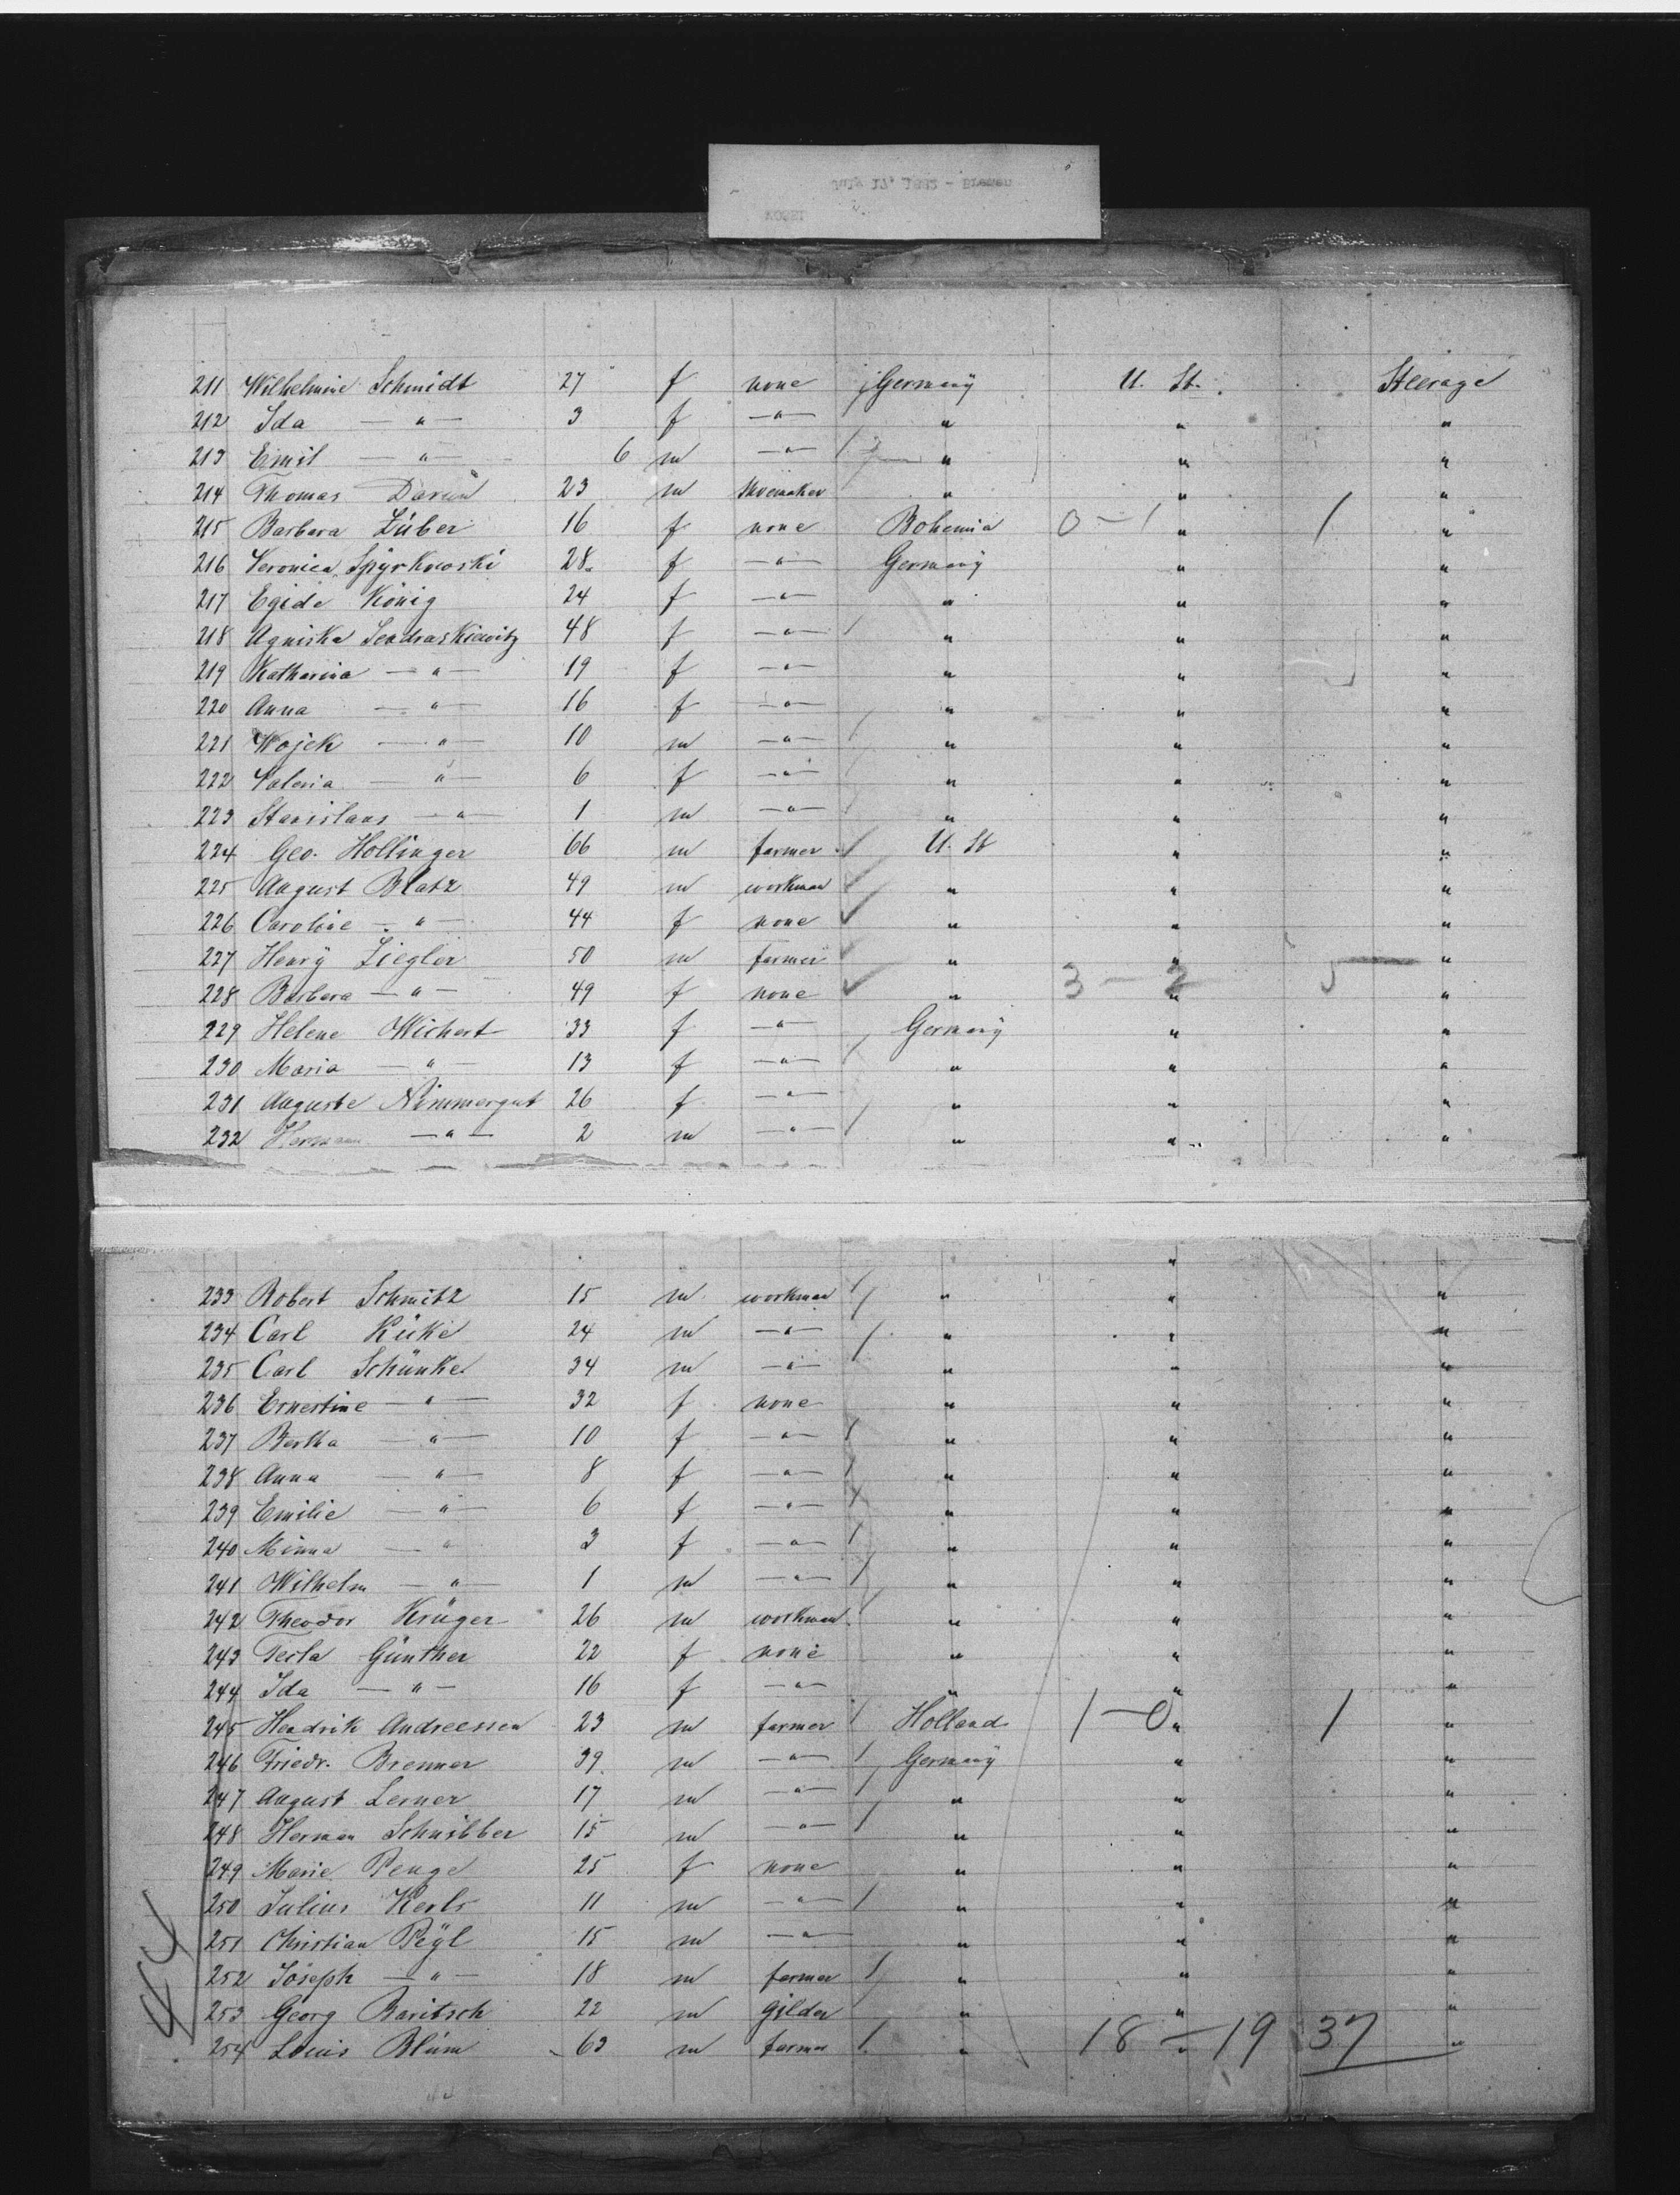 July 17, 1882 - Bremen
MOSEL
211 Wilhelmine Schmidt 27 f none Germany U. St. Steerage
212 Ida — " — 3 f — " — " " "
213 Emil — " — 6 m — " — " " "
214 Thomas 23 m shoemaker " " "
215 Barbara Züber 16 f none Bohemia 0 - 1 " 1 "
216 Veronica Spyrkowski 28 f — " — Germany " "
217 Egide König 24 f — " — " " "
218 Agniska 48 f — " — " " "
219 Katharina — " — 19 f — " — " " "
220 Anna — " — 16 f — " — " " "
221 Wojek — " — 10 m — " — " " "
222 Valeria — " — 6 f — " — " " "
223 Stanislaus — " — 1 m — " — " " "
224 Geo. Hollinger 66 m farmer U. St " "
225 August Blatz 49 m workman " " "
226 Caroline — " — 44 f none " " "
227 Henry Ziegler 50 m farmer " " "
228 Barbara — " — 49 f none " 3 - 2 " 5 "
229 Helene Wichert 33 f — " — Germany " "
230 Maria — " — 13 f — " — " " "
231 Auguste Nimmergut 26 f — " — " " "
232 Hermann — " — 2 m — " — " " "
233 Robert Schmitz 15 m workman " " "
234 Carl Küke 24 m — " — " " "
235 Carl Schünke 34 m — " — " " "
236 Ernestine — " — 32 f none " " "
237 Bertha — " — 10 f — " — " " "
238 Anna — " — 8 f — " — " " "
239 Emilie — " — 6 f — " — " " "
240 Minna — " — 3 f — " — " " "
241 Wilhelm — " — 1 m — " — " " "
242 Theodor Krüger 26 m workman " " "
243 Tecla Günther 22 f none " " "
244 Ida — " — 16 f — " — " " "
245 Hendrik Andreessen 23 m farmer Holland 1 - 0 " 1 "
246 Friedr. Brenner 39 m — " — Germany " "
247 August Lerner 17 m — " — " " "
248 Herman Schnibber 15 m — " — " " "
249 Marie Penge 25 f none " " "
250 Julius Kerls 11 m — " — " " "
251 Christian Peyl 15 m — " — " " "
252 Joseph — " — 18 m farmer " " "
253 Georg Baritsch 22 m gilder " " "
254 Louis Blüm 63 m farmer " 18 - 19 37 "
44